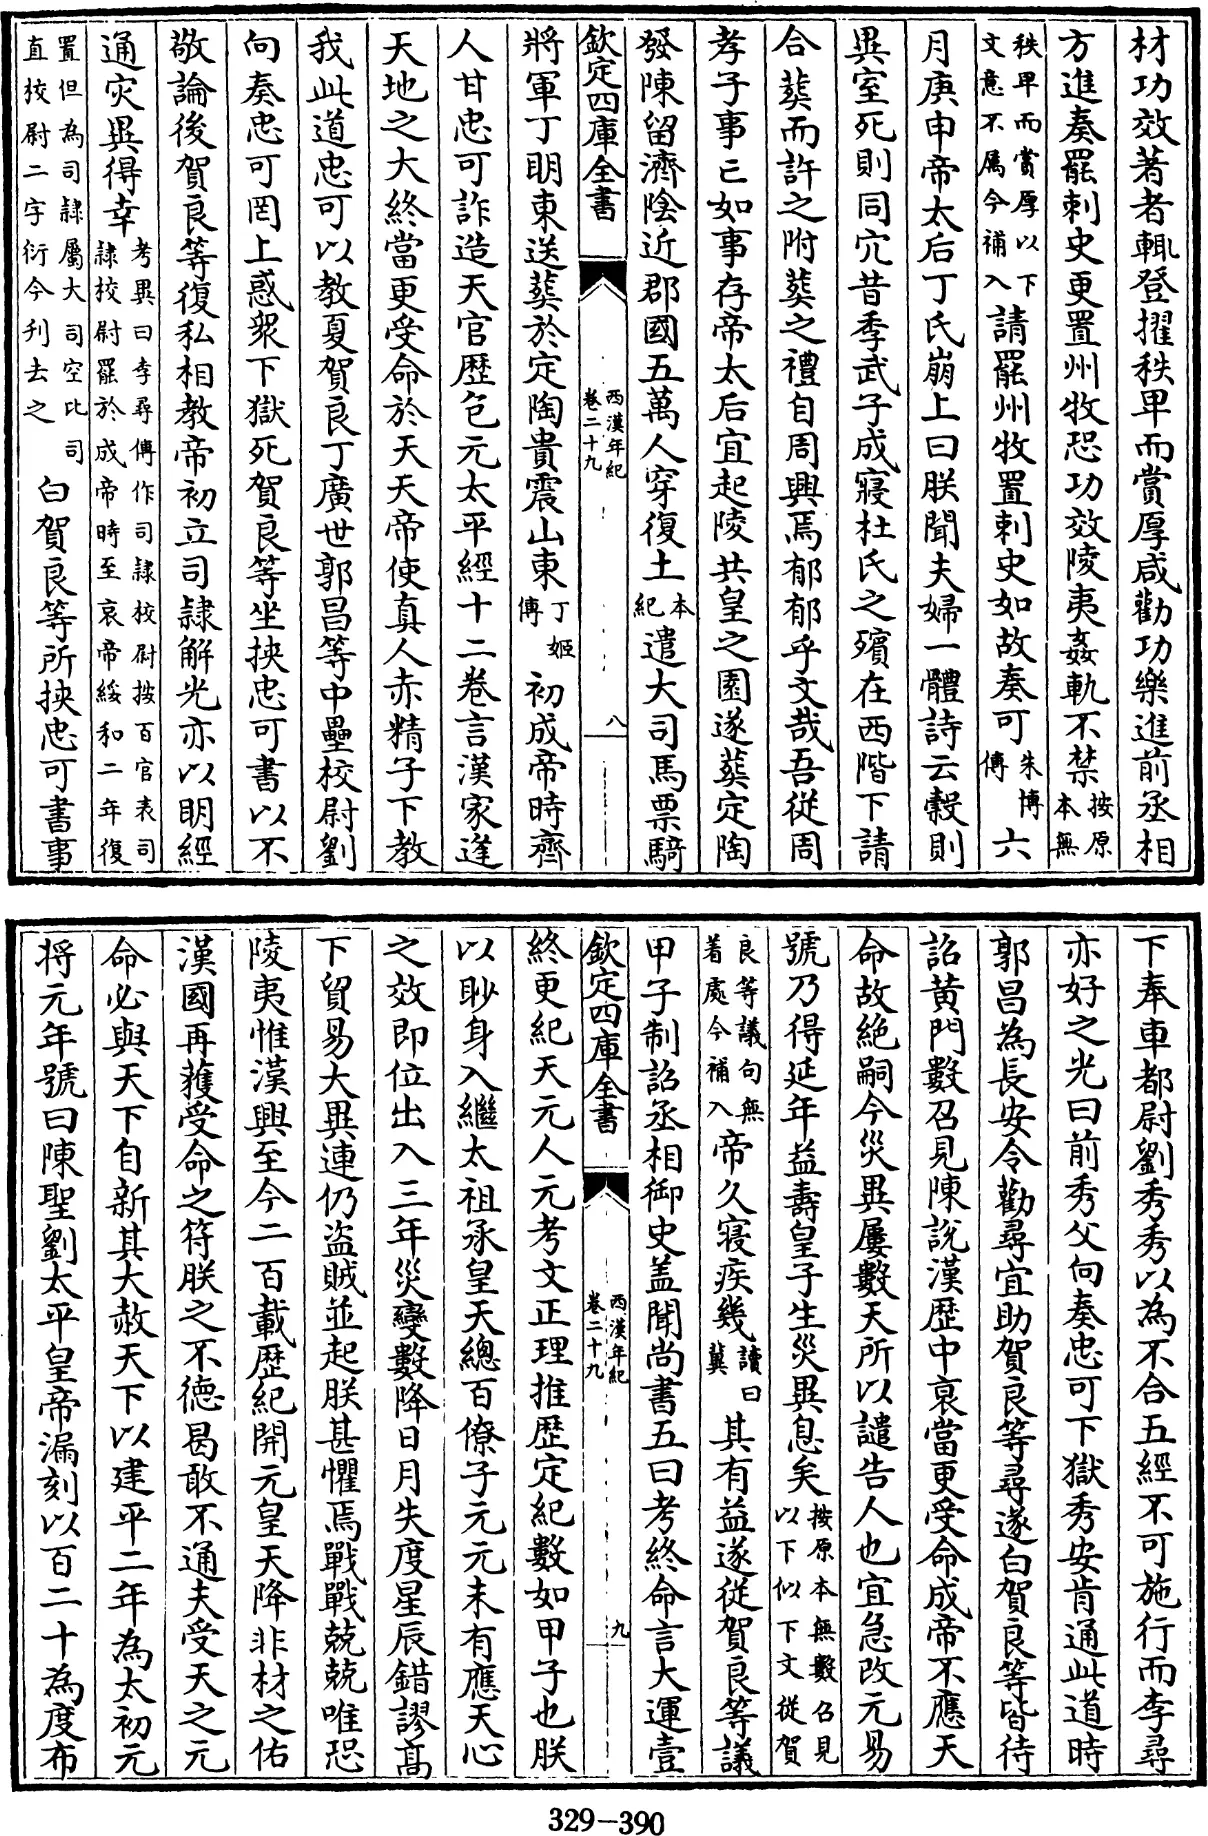 材功效著者輒登擢秩卑而賞厚咸勸功樂進前丞相
方進奏罷刺史更置州牧恐功效陵夷姦軌不禁按原本無
秩卑而賞厚以下文意不属今補入請罷州牧置刺史如故奏可朱博傳六
月庚申帝太后丁氏崩上曰朕聞夫婦一體詩云榖則
異室死則同穴昔季武子成寢杜氏之殯在西階下請
合葬而許之附葬之禮自周興焉郁郁乎文哉吾從周
孝子事亡如事存帝太后宜起陵共皇之園遂葬定陶
發陳留濟陰近郡國五萬人穿復土本紀遣大司馬票騎
欽定四庫全書
西漢年紀
卷二十九
八
將軍丁明東送葬於定陶貴震山東丁姬傳初成帝時齊
人甘忠可詐造天官歴包元太平經十二卷言漢家逢
天地之大終當更受命於天天帝使真人赤精子下教
我此道忠可以教夏賀良丁廣世郭昌等中壘校尉劉
向奏忠可罔上惑衆下獄死賀良等坐挾忠可書以不
敬論後賀良等復私相教帝初立司隷解光亦以明經
通灾異得幸考異曰李尋傳作司隷校尉按百官表司隷校尉罷於成帝時至哀帝綏和二年復
置但為司隷屬大司空比司直校尉二字衍今刋去之白賀良等所挾忠可書事
下奉車都尉劉秀秀以為不合五經不可施行而李尋
亦好之光曰前秀父向奏忠可下獄秀安肯通此道時
郭昌為長安令勸尋宜助賀良等尋遂白賀良等皆待
詔黄門數召見陳說漢歴中衰當更受命成帝不應天
命故絶嗣今災異屢數天所以譴告人也宜急改元易
號乃得延年益壽皇子生災異息矣按原本無數召見以下似下文從賀
良等議句無着處今補入帝久寢疾幾讀曰冀其有益遂從賀良等議
甲子制詔丞相御史盖聞尚書五曰考終命言大運壹
欽定四庫全書
西漢年紀
卷二十九
九
終更紀天元人元考文正理推歴定紀數如甲子也朕
以眇身入繼太祖承皇天總百僚子元元未有應天心
之效即位出入三年災變數降日月失度星辰錯謬髙
下貿易大異連仍盗賊並起朕甚懼焉戰戰兢兢唯恐
陵夷惟漢興至今二百載歴紀開元皇天降非材之佑
漢國再獲受命之符朕之不德曷敢不通夫受天之元
命必與天下自新其大赦天下以建平二年為太初元
将元年號曰陳聖劉太平皇帝漏刻以百二十為度布
329-390